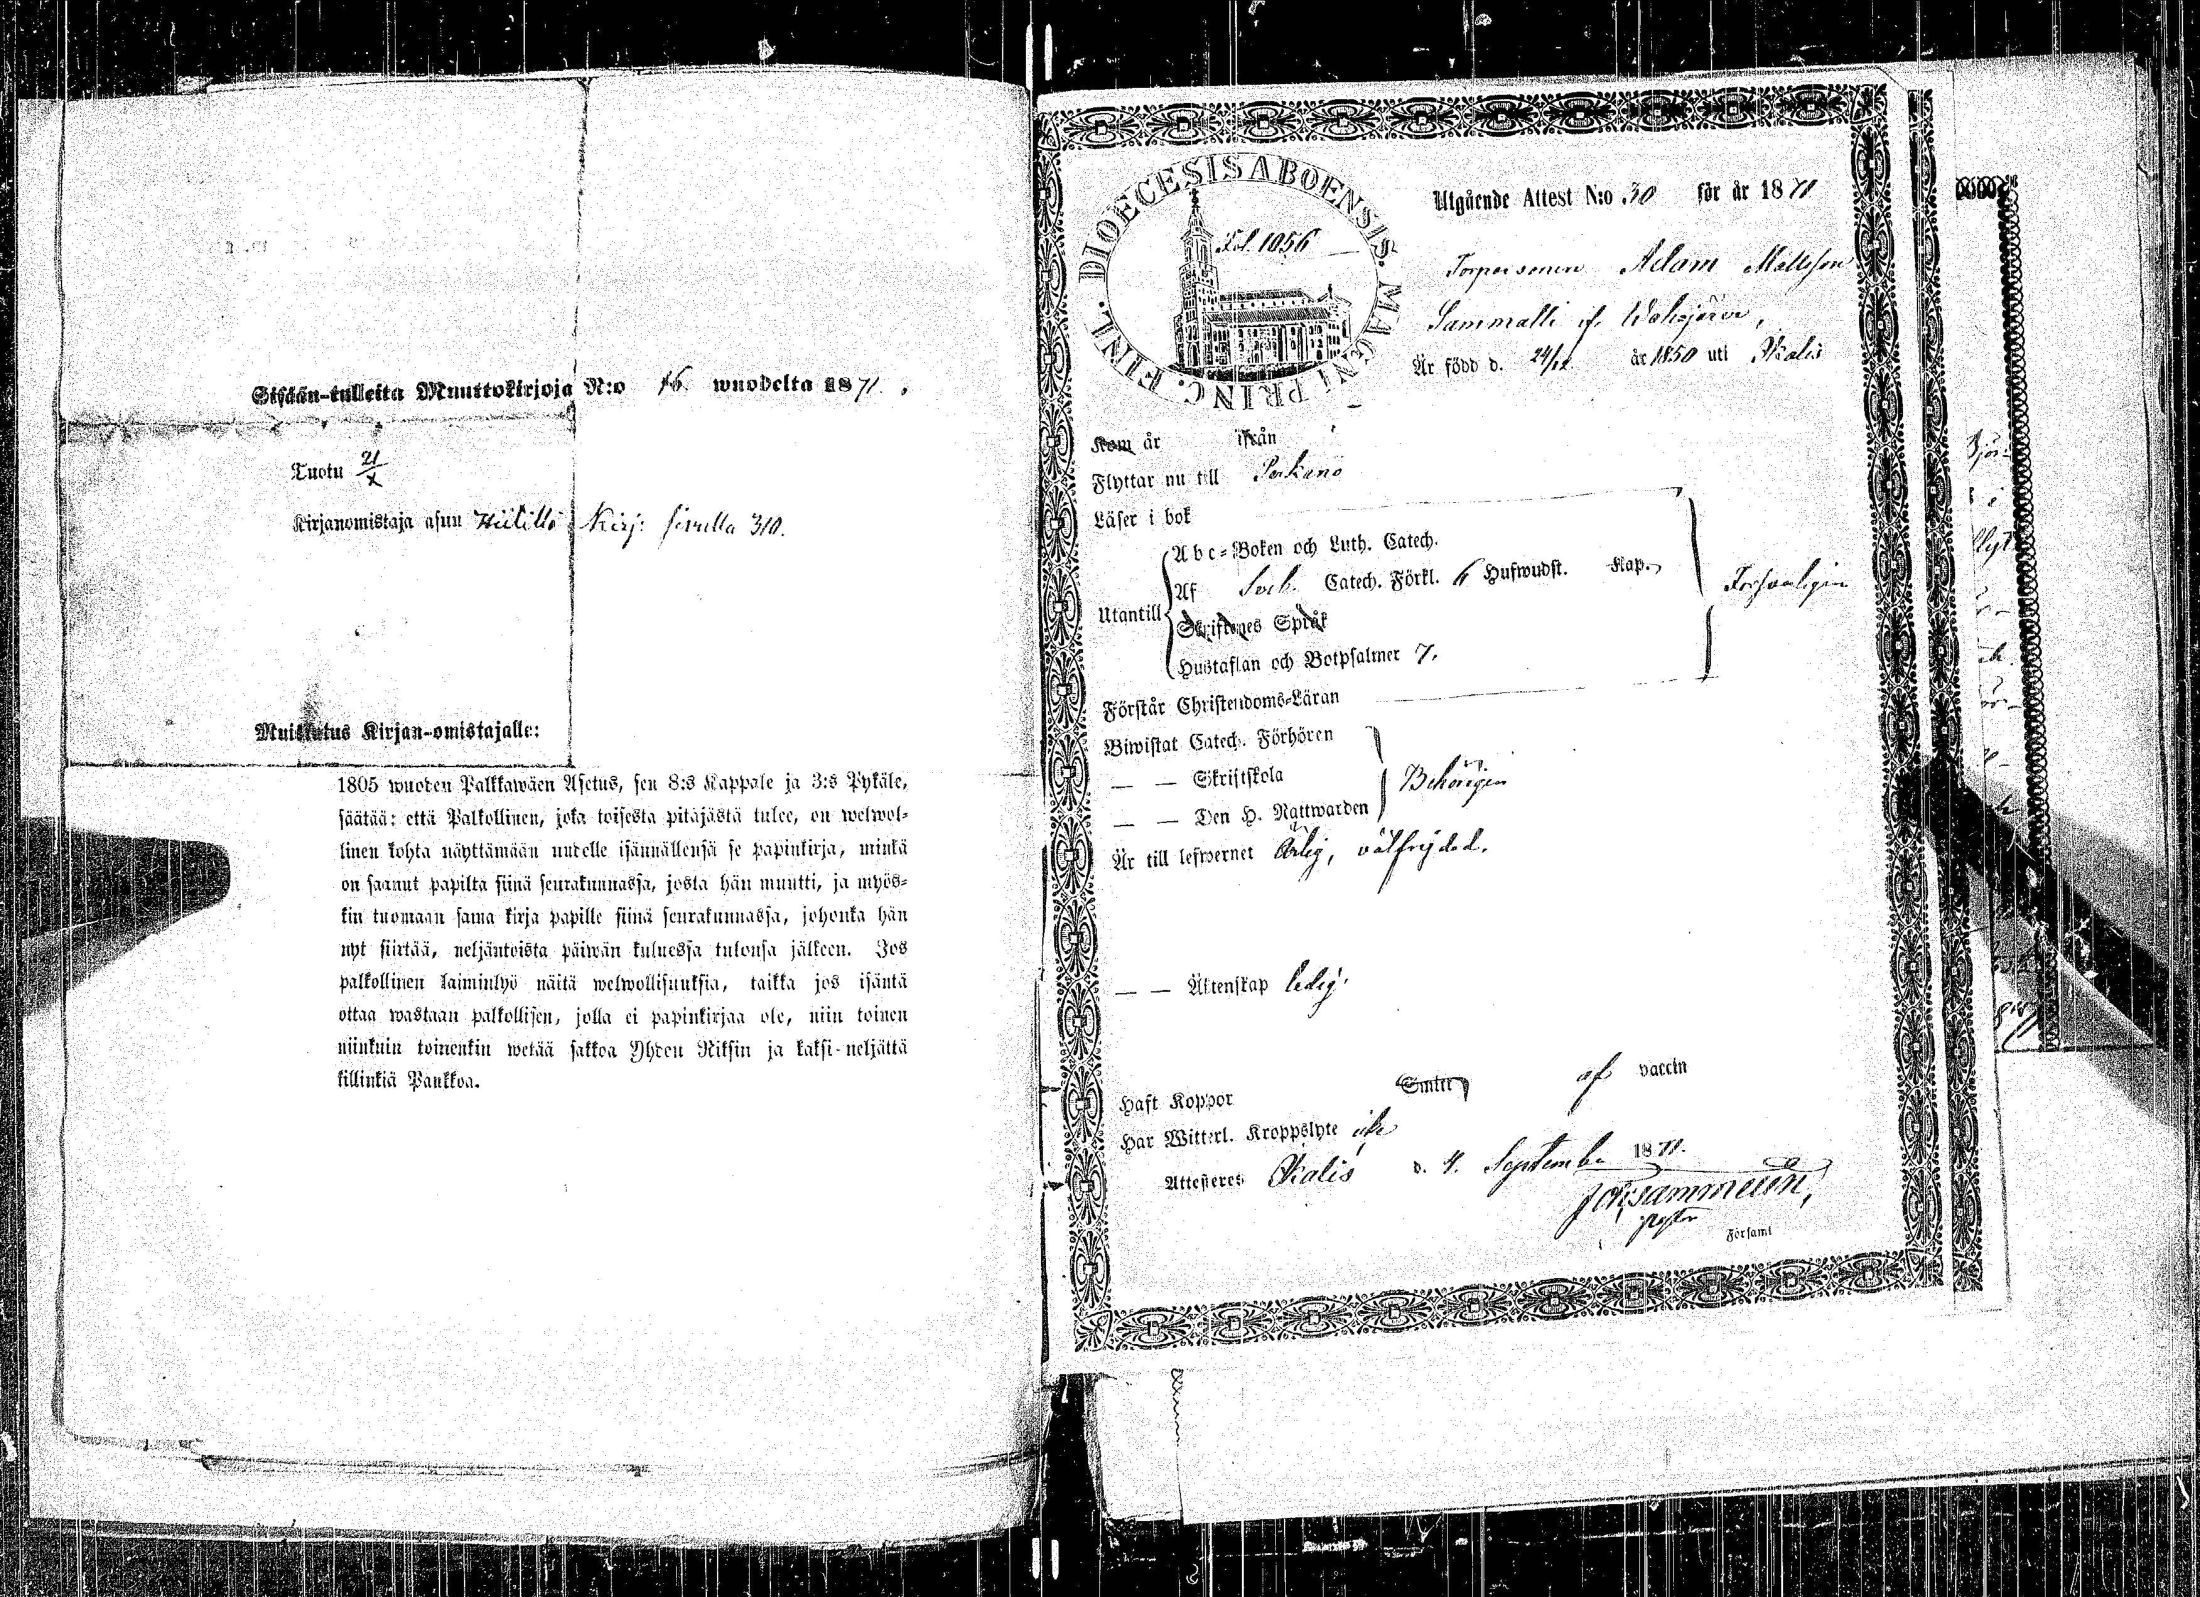 Sisään-tulleita Muuttokirjoja N:o 16. wuodelta 1871.
Tuotu 21/X
Kirjanomistaja asuu Kirj: sivulla 310.
Muistutus Kirjan-omistajalle:
1805 wuoden Palkkawäen Asetus, sen 8:s Kappale ja 3:s Pykäle,
säätää: että Palkollinen, joka toisesta pitäjästä tulee, on welwol-
linen kohta näyttämään uudelle isännällensä se papinkirja, minkä
on saanut papilta siinä seurakunnassa, josta hän muutti, ja myös-
kin tuomaan sama kirja papille siinä seurakunnassa, johonka hän
nyt siirtää, neljäntoista päiwän kuluessa tulonsa jälkeen. Jos
palkollinen laiminlyö näitä welwollisuuksia, taikka jos isäntä
ottaa wastaan palkollisen, jolla ei papinkirjaa ole, niin toinen
niinkuin toinenkin wetää sakkoa Yhden Riksin ja kaksi-neljättä
killinkiä Pankkoa.
DIOECESIS ABOENSIS. MAGNI PRINC. FINL.
Fol. 1056
Utgående Attest N:o 30 för år 1871
Torparsonen Adam Mattsson
Sammalli if.
Är född d. 24/12 år 1850 uti Ikalis
Kom år ifrån
Flyttar nu till Parkano
Läser i bok
Abc-Boken och Luth. Catech.
Utantill Af Sveb. Catech. Förkl. 6 Hufwudst. Kap.
Skriftenes Språk
Hustaflan och Botpsalmer 7.
Försvarligen
Förstår Christendoms-Läran
Biwistat Catech. Förhören
— — Skriftskola
— — Den H. Nattwarden
Behörigen
Är till lefwernet ärlig, välfrejdad.
— — Äktenskap ledig.
Haft Koppor Smitt af vaccin
Har Witterl. Kroppslyte icke
Attesteres Ikalis d. 4. September 1871.
Församl